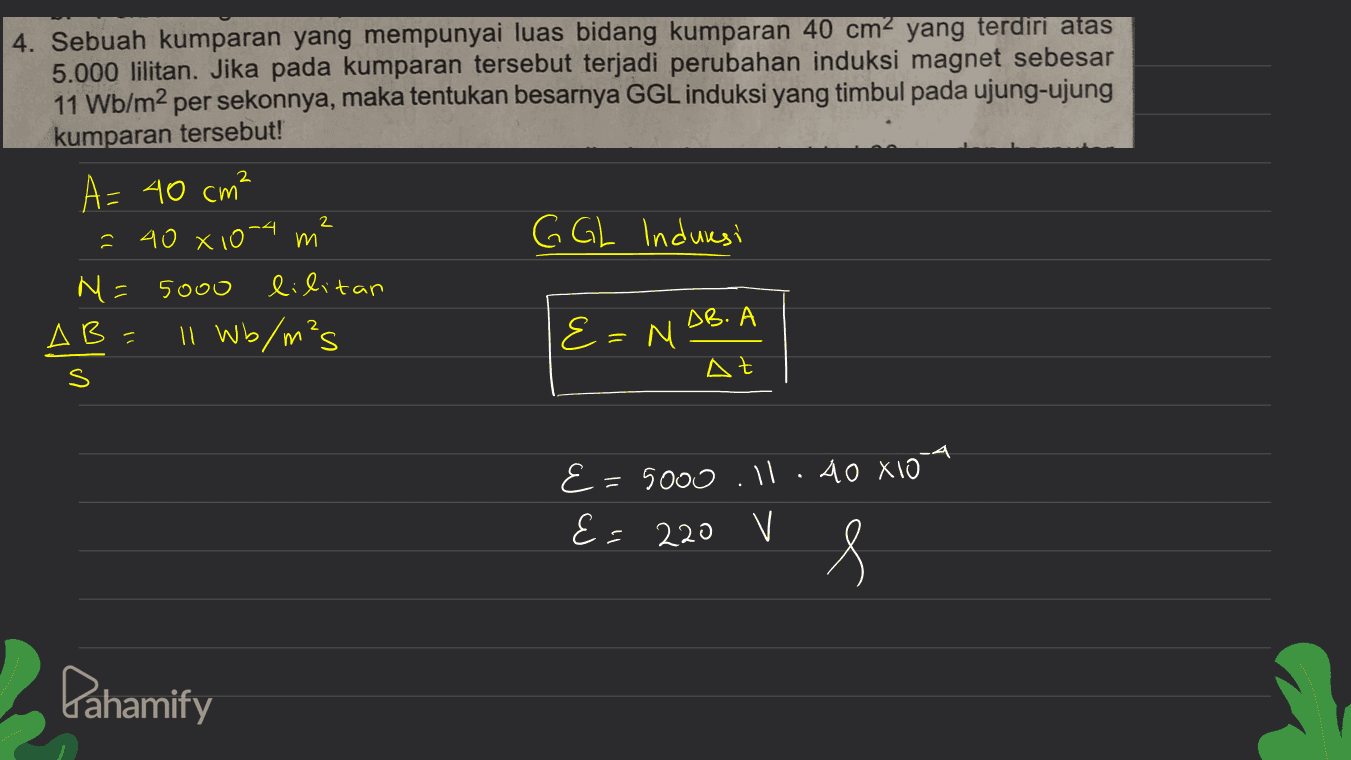 4. Sebuah kumparan yang mempunyai luas bidang kumparan 40 cm² yang terdiri atas
5.000 lilitan. Jika pada kumparan tersebut terjadi perubahan induksi magnet sebesar
11 Wb/m² per sekonnya, maka tentukan besarnya GGL induksi yang timbul pada ujung-ujung
kumparan tersebut!
A = 40 cm²
= 40 x 10⁻⁴ m²
N = 5000 lilitan
ΔB = 11 Wb/m²s
s
GGL Induksi
ΔB. A
ε = N
Δt
ε = 5000 . 11 . 40 x10⁻⁴
ε = 220 V
Pahamify